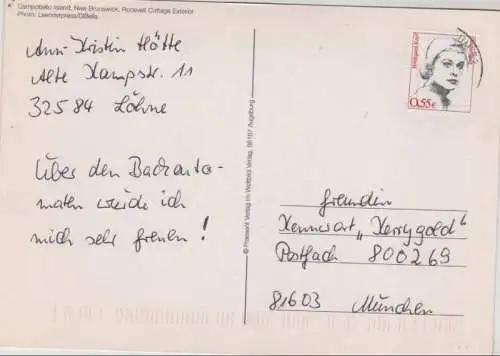 Campobello Island, New Brunswick, Roosevelt Cottage Exterior
Photo: Laenderpress/DiBella
Ann-Kristin Hötte
Alte Kampstr. 11
32584 Löhne
Über den Backauto-
maten würde ich
mich sehr freuen!
© Praesent Verlag im Weltbild Verlag, 86167 Augsburg
Hildegard Knef
0,55€
freundin
Kennwort „Kerrygold“
Postfach 800269
81603 München